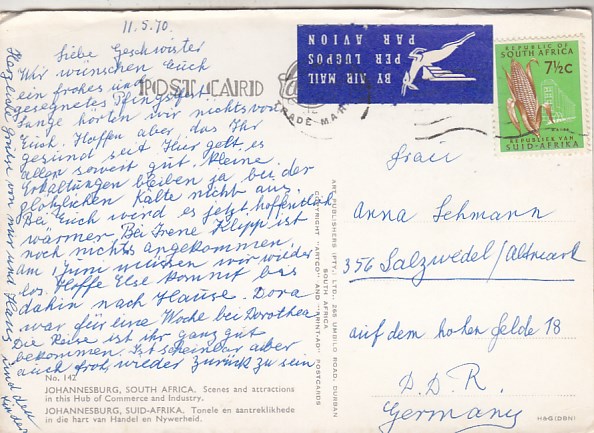 11.5.70
Liebe Geschwister
Wir wünschen Euch
ein frohes und
gesegnetes Pfingstfest.
Lange hörten wir nichts von
Euch. Hoffen aber, das Ihr
gesund seit. Hier geht es
allen soweit gut. Kleine
Erkältungen bleiben ja bei der
plötzlichen Kälte nicht aus.
Bei Euch wird es jetzt hoffentlich
wärmer. Bei Irene Klipp ist
noch nichts angekommen.
am Juni müssen wir wieder
los. Hoffe Else kommt bis
dahin nach Hause. Dora
war für eine Woche bei Dorothea
Die Reise ist ihr ganz gut
bekommen. Ist scheinbar aber
auch froh, wieder zurück zu sein
Herzliche Grüsse von mir und Hans und den Kindern
POST CARD
TRADE MARK
BY AIR MAIL
PER LUGPOS
PAR AVION
REPUBLIC OF
SOUTH AFRICA
7½C
REPUBLIEK VAN
SUID-AFRIKA
Frau
Anna Lehmann
356 Salzwedel/Altmark
auf dem hohen Felde 18
D.D.R.
Germany
ART PUBLISHERS (PTY.) LTD., 265 UMBILO ROAD, DURBAN
SOUTH AFRICA
COPYRIGHT "ARTCO" AND "AHINTJAD" POSTCARDS
No. 142
JOHANNESBURG, SOUTH AFRICA. Scenes and attractions
in this Hub of Commerce and Industry.
JOHANNESBURG, SUID-AFRIKA. Tonele en aantreklikhede
in die hart van Handel en Nywerheid.
H&G(DBN)